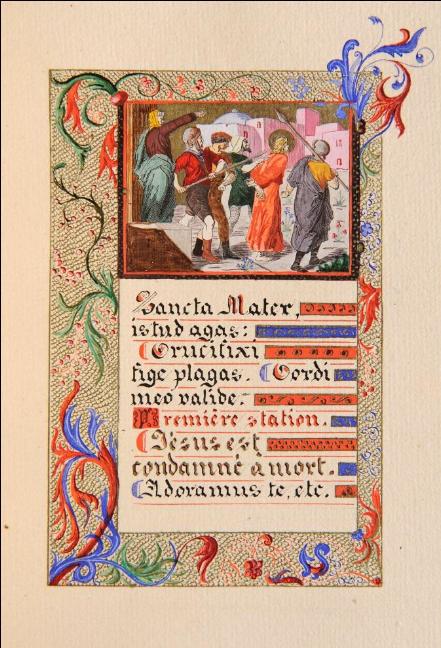 Sancta Mater,
istud agas:
Crucifixi
fige plagas. Cordi
meo valide.
Première station.
Jésus est
condamné à mort.
Adoramus te, etc.